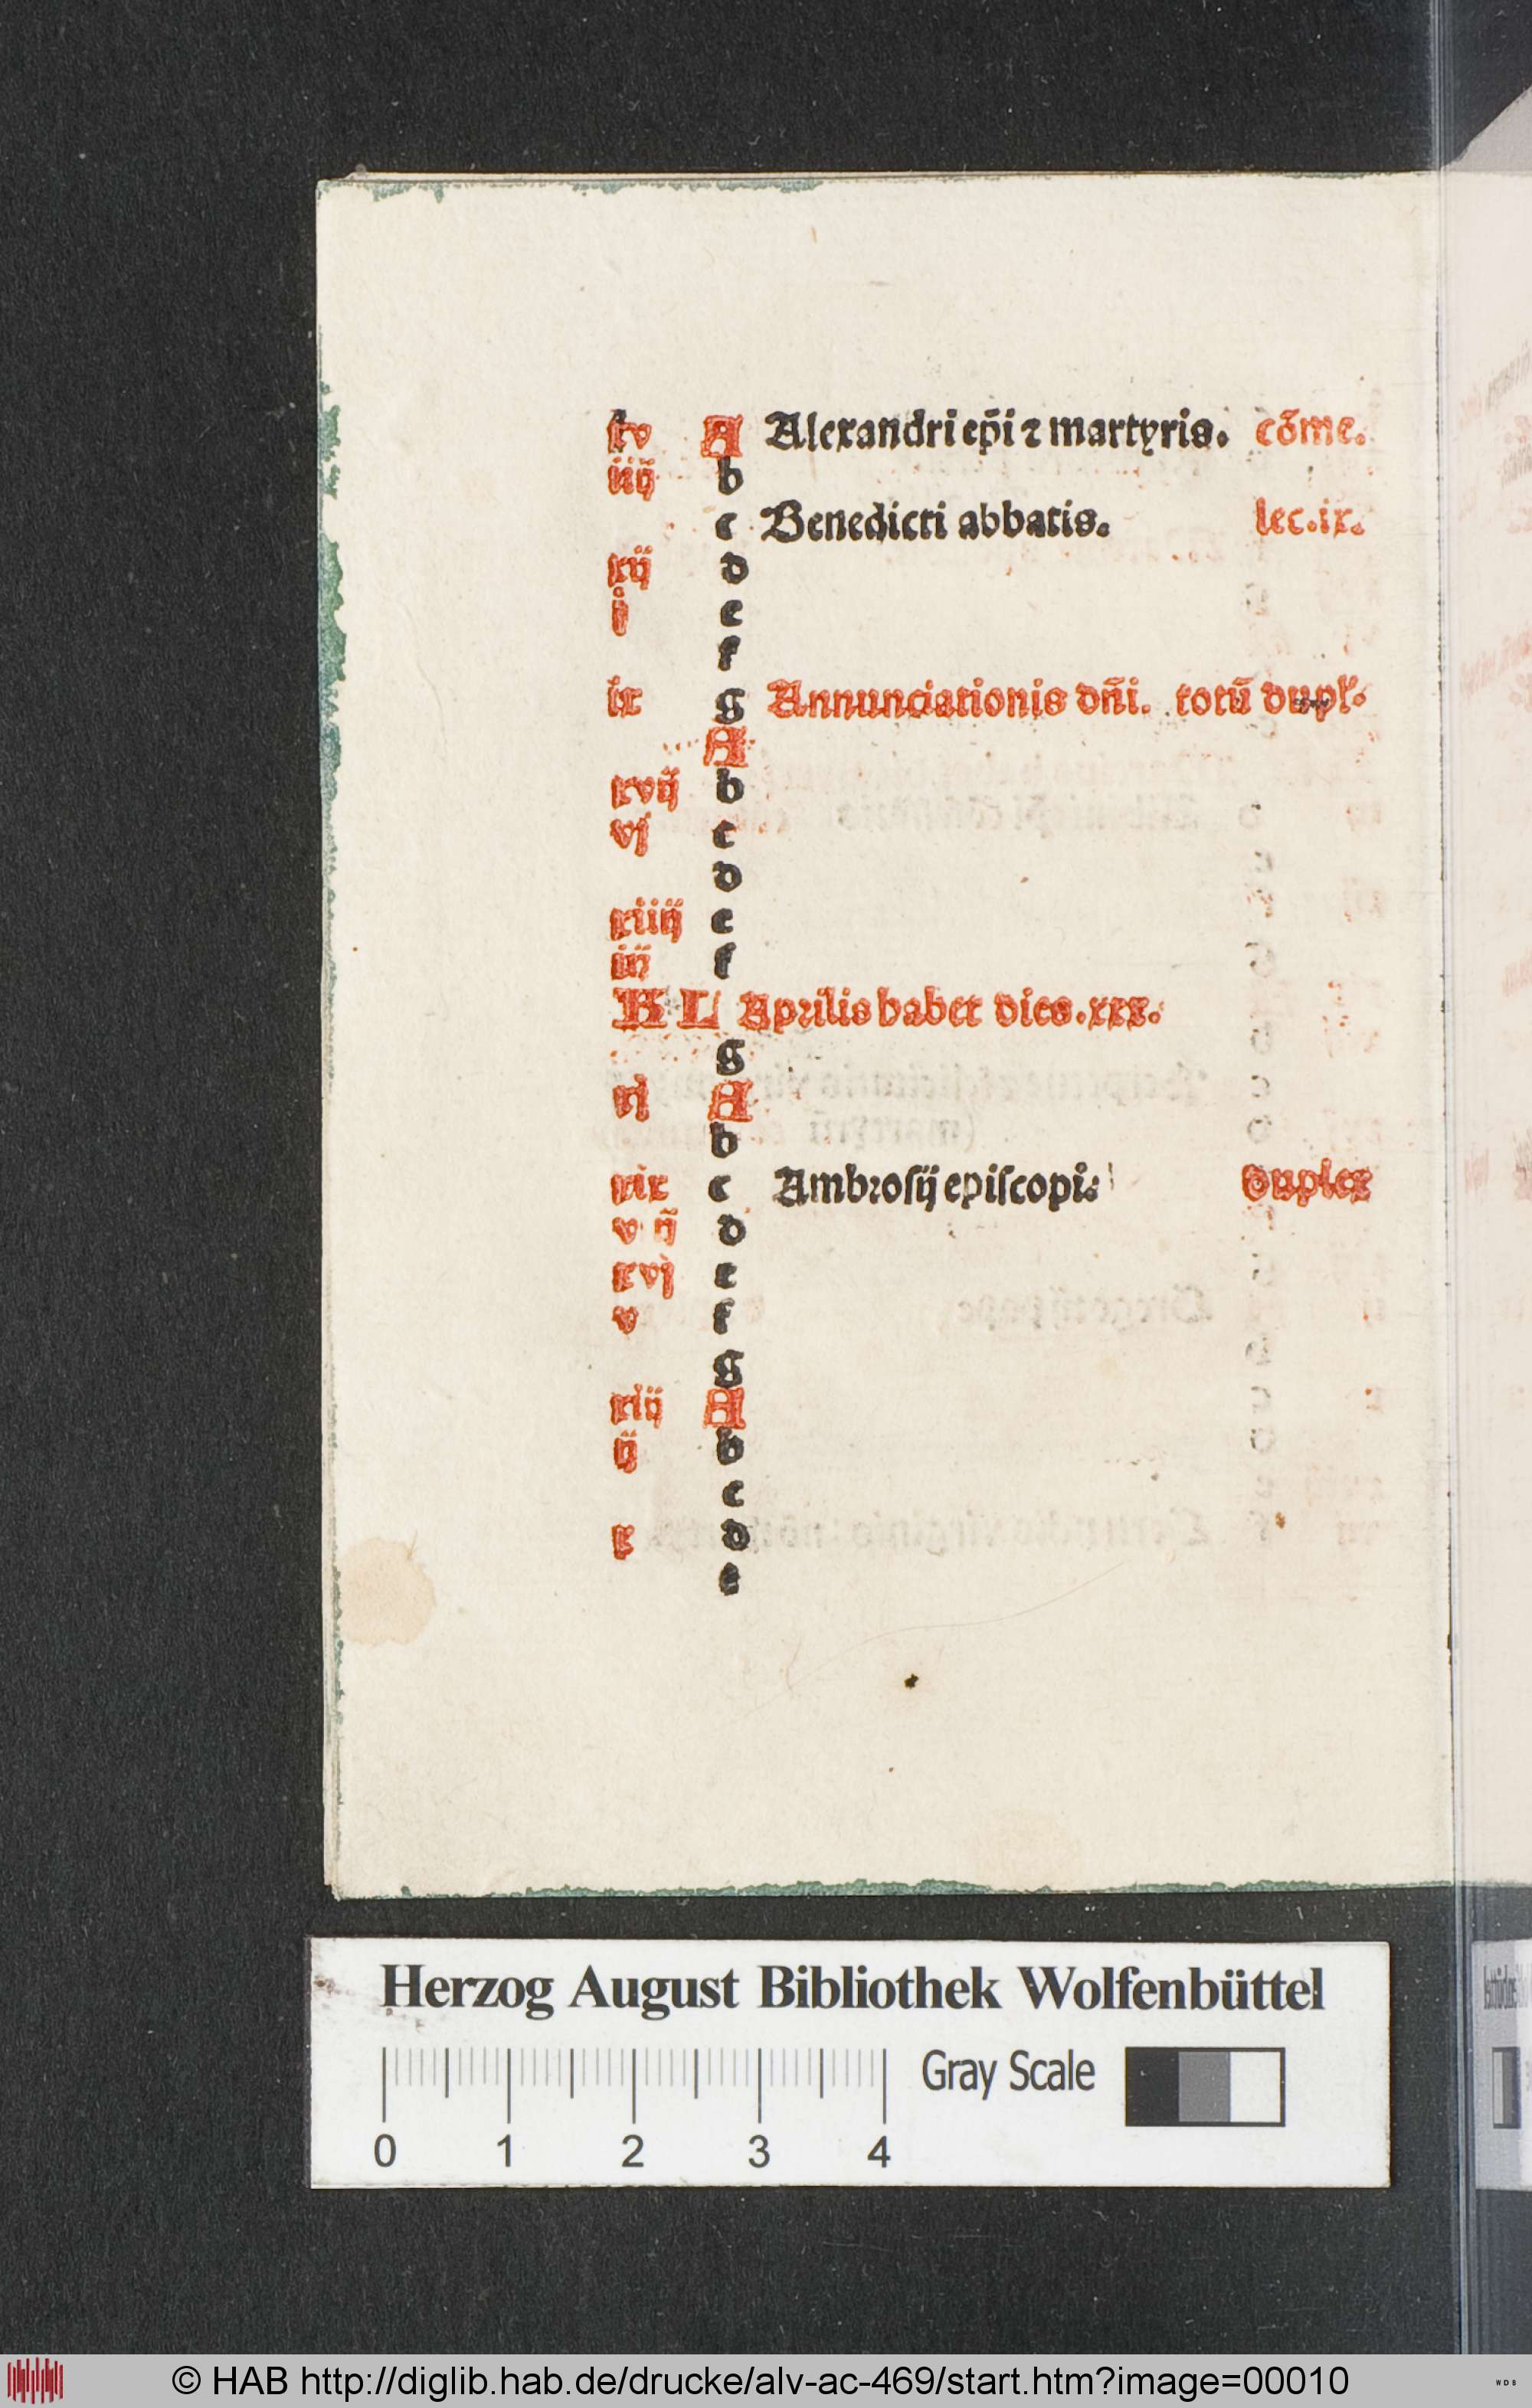 xv A Alexandri ep̄i ⁊ martyris. cōme.
iiij b
c Benedicti abbatis. lec.ix.
xij d
j e
f
ix g Annunciationis dn̄i. totū dupl'.
A
xvij b
vj c
d
xiiij e
iij f
KL Aprilis habet dies.xxx.
g
xj A
b
xix c Ambrosij episcopi. duplex
viij d
xvj e
v f
g
xiij A
ij b
c
x d
e
Herzog August Bibliothek Wolfenbüttel
Gray Scale
0 1 2 3 4
© HAB http://diglib.hab.de/drucke/alv-ac-469/start.htm?image=00010